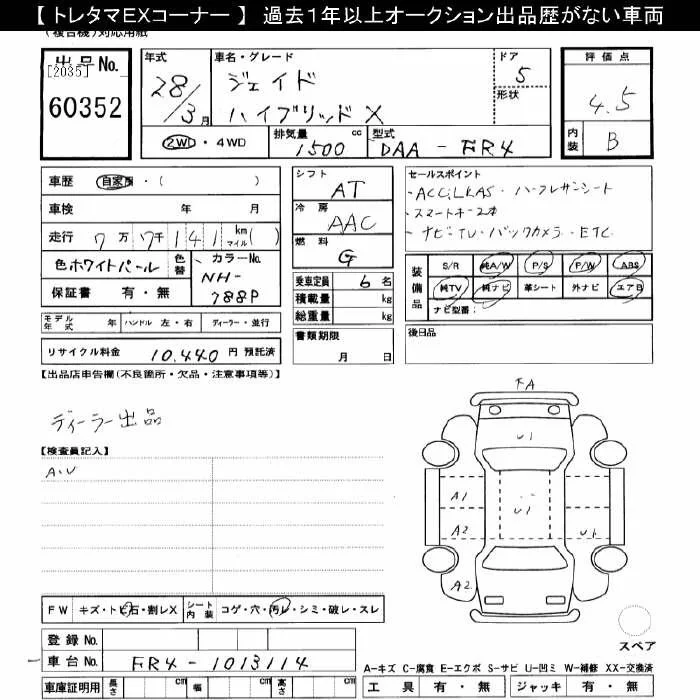 【 トレタマEXコーナー 】 過去1年以上オークション出品歴がない車両
(複合機)対応用紙
出品No.
[2035]
60352
年式
28/3月
車名・グレード
ジェイド
ハイブリッド X
ドア
5
形状
評価点
4.5
内装
B
2WD ・ 4WD
排気量 cc
1500
型式
DAA - FR4
車歴 自家用・( )
車検 年 月
走行 7万 7千 141 km マイル( )
色 ホワイトパール
色替
カラーNo.
NH-788P
保証書 有・無
シフト
AT
冷房
AAC
燃料
G
乗車定員 6名
積載量 kg
総重量 kg
セールスポイント
・ACC、LKAS・ハーフレザーシート
・スマートキー2本
・ナビ・TV・バックカメラ・ETC
装備品
S/R 純A/W P/S P/W ABS
純TV 純ナビ 革シート 外ナビ エアB
ナビ型番:
モデル年式 年 ハンドル 左・右 ディーラー・並行
リサイクル料金 10,440 円 預託済
書類期限
月 日
後日品
【出品店申告欄(不良箇所・欠品・注意事項等)】
ディーラー出品
【検査員記入】
A・U
FA
U1
A1
U1
A2
U1
A2
スペア
FW キズ・トビ石・割レX
シート内装 コゲ・穴・汚レ・シミ・破レ・スレ
登録No.
車台No. FR4-1013114
車庫証明用 長さ cm 幅 cm 高さ cm
A-キズ C-腐食 E-エクボ S-サビ U-凹ミ W-補修 XX-交換済
工具 有・無 ジャッキ 有・無